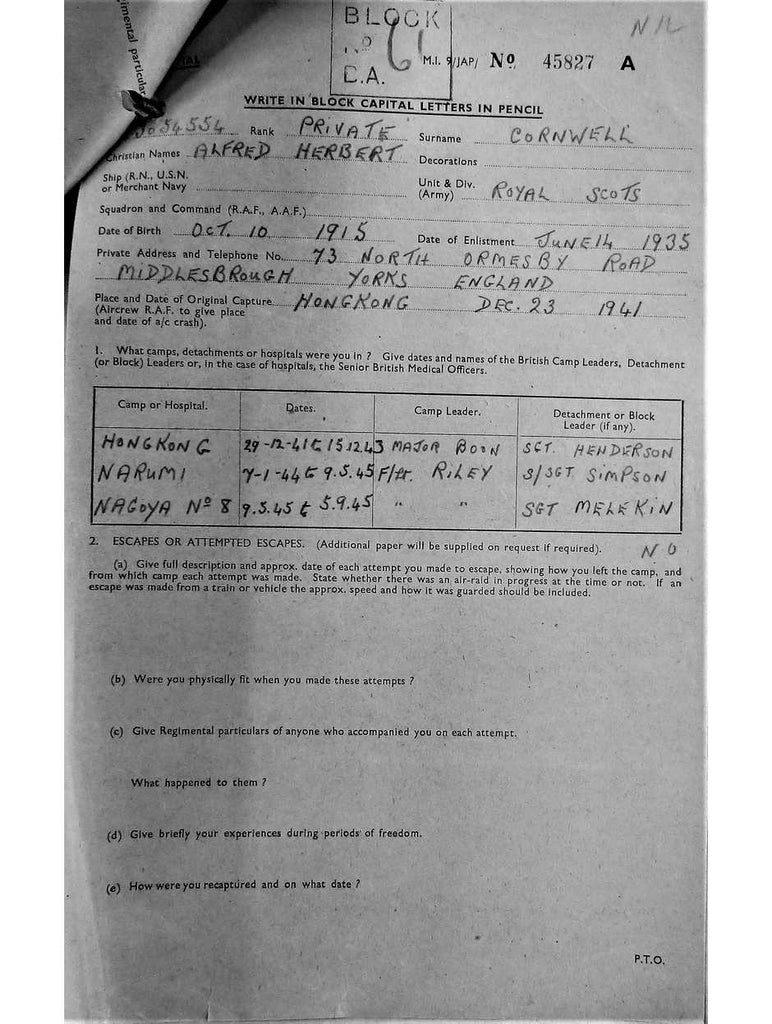 imental particular
BLOCK
No 61
C.A.
NIL
M.I. 9/JAP/ No 45827 A
WRITE IN BLOCK CAPITAL LETTERS IN PENCIL
54554 Rank PRIVATE Surname CORNWELL
Christian Names ALFRED HERBERT Decorations
Ship (R.N., U.S.N. or Merchant Navy
Unit & Div. (Army) ROYAL SCOTS
Squadron and Command (R.A.F., A.A.F.)
Date of Birth OCT. 10 1915 Date of Enlistment JUNE 14 1935
Private Address and Telephone No. 73 NORTH ORMESBY ROAD
MIDDLESBROUGH YORKS ENGLAND
Place and Date of Original Capture HONGKONG DEC. 23 1941
(Aircrew R.A.F. to give place
and date of a/c crash).
1. What camps, detachments or hospitals were you in ? Give dates and names of the British Camp Leaders, Detachment
(or Block) Leaders or, in the case of hospitals, the Senior British Medical Officers.
Camp or Hospital. Dates. Camp Leader. Detachment or Block Leader (if any).
HONGKONG 29-12-41 to 15.12.43 MAJOR BOON SGT. HENDERSON
NARUMI 7-1-44 to 9.5.45 F/Lt. RILEY S/SGT SIMPSON
NAGOYA No 8 9.5.45 to 5.9.45 " " SGT MELEKIN
2. ESCAPES OR ATTEMPTED ESCAPES. (Additional paper will be supplied on request if required). NO
(a) Give full description and approx. date of each attempt you made to escape, showing how you left the camp, and
from which camp each attempt was made. State whether there was an air-raid in progress at the time or not. If an
escape was made from a train or vehicle the approx. speed and how it was guarded should be included.
(b) Were you physically fit when you made these attempts ?
(c) Give Regimental particulars of anyone who accompanied you on each attempt.
What happened to them ?
(d) Give briefly your experiences during periods of freedom.
(e) How were you recaptured and on what date ?
P.T.O.